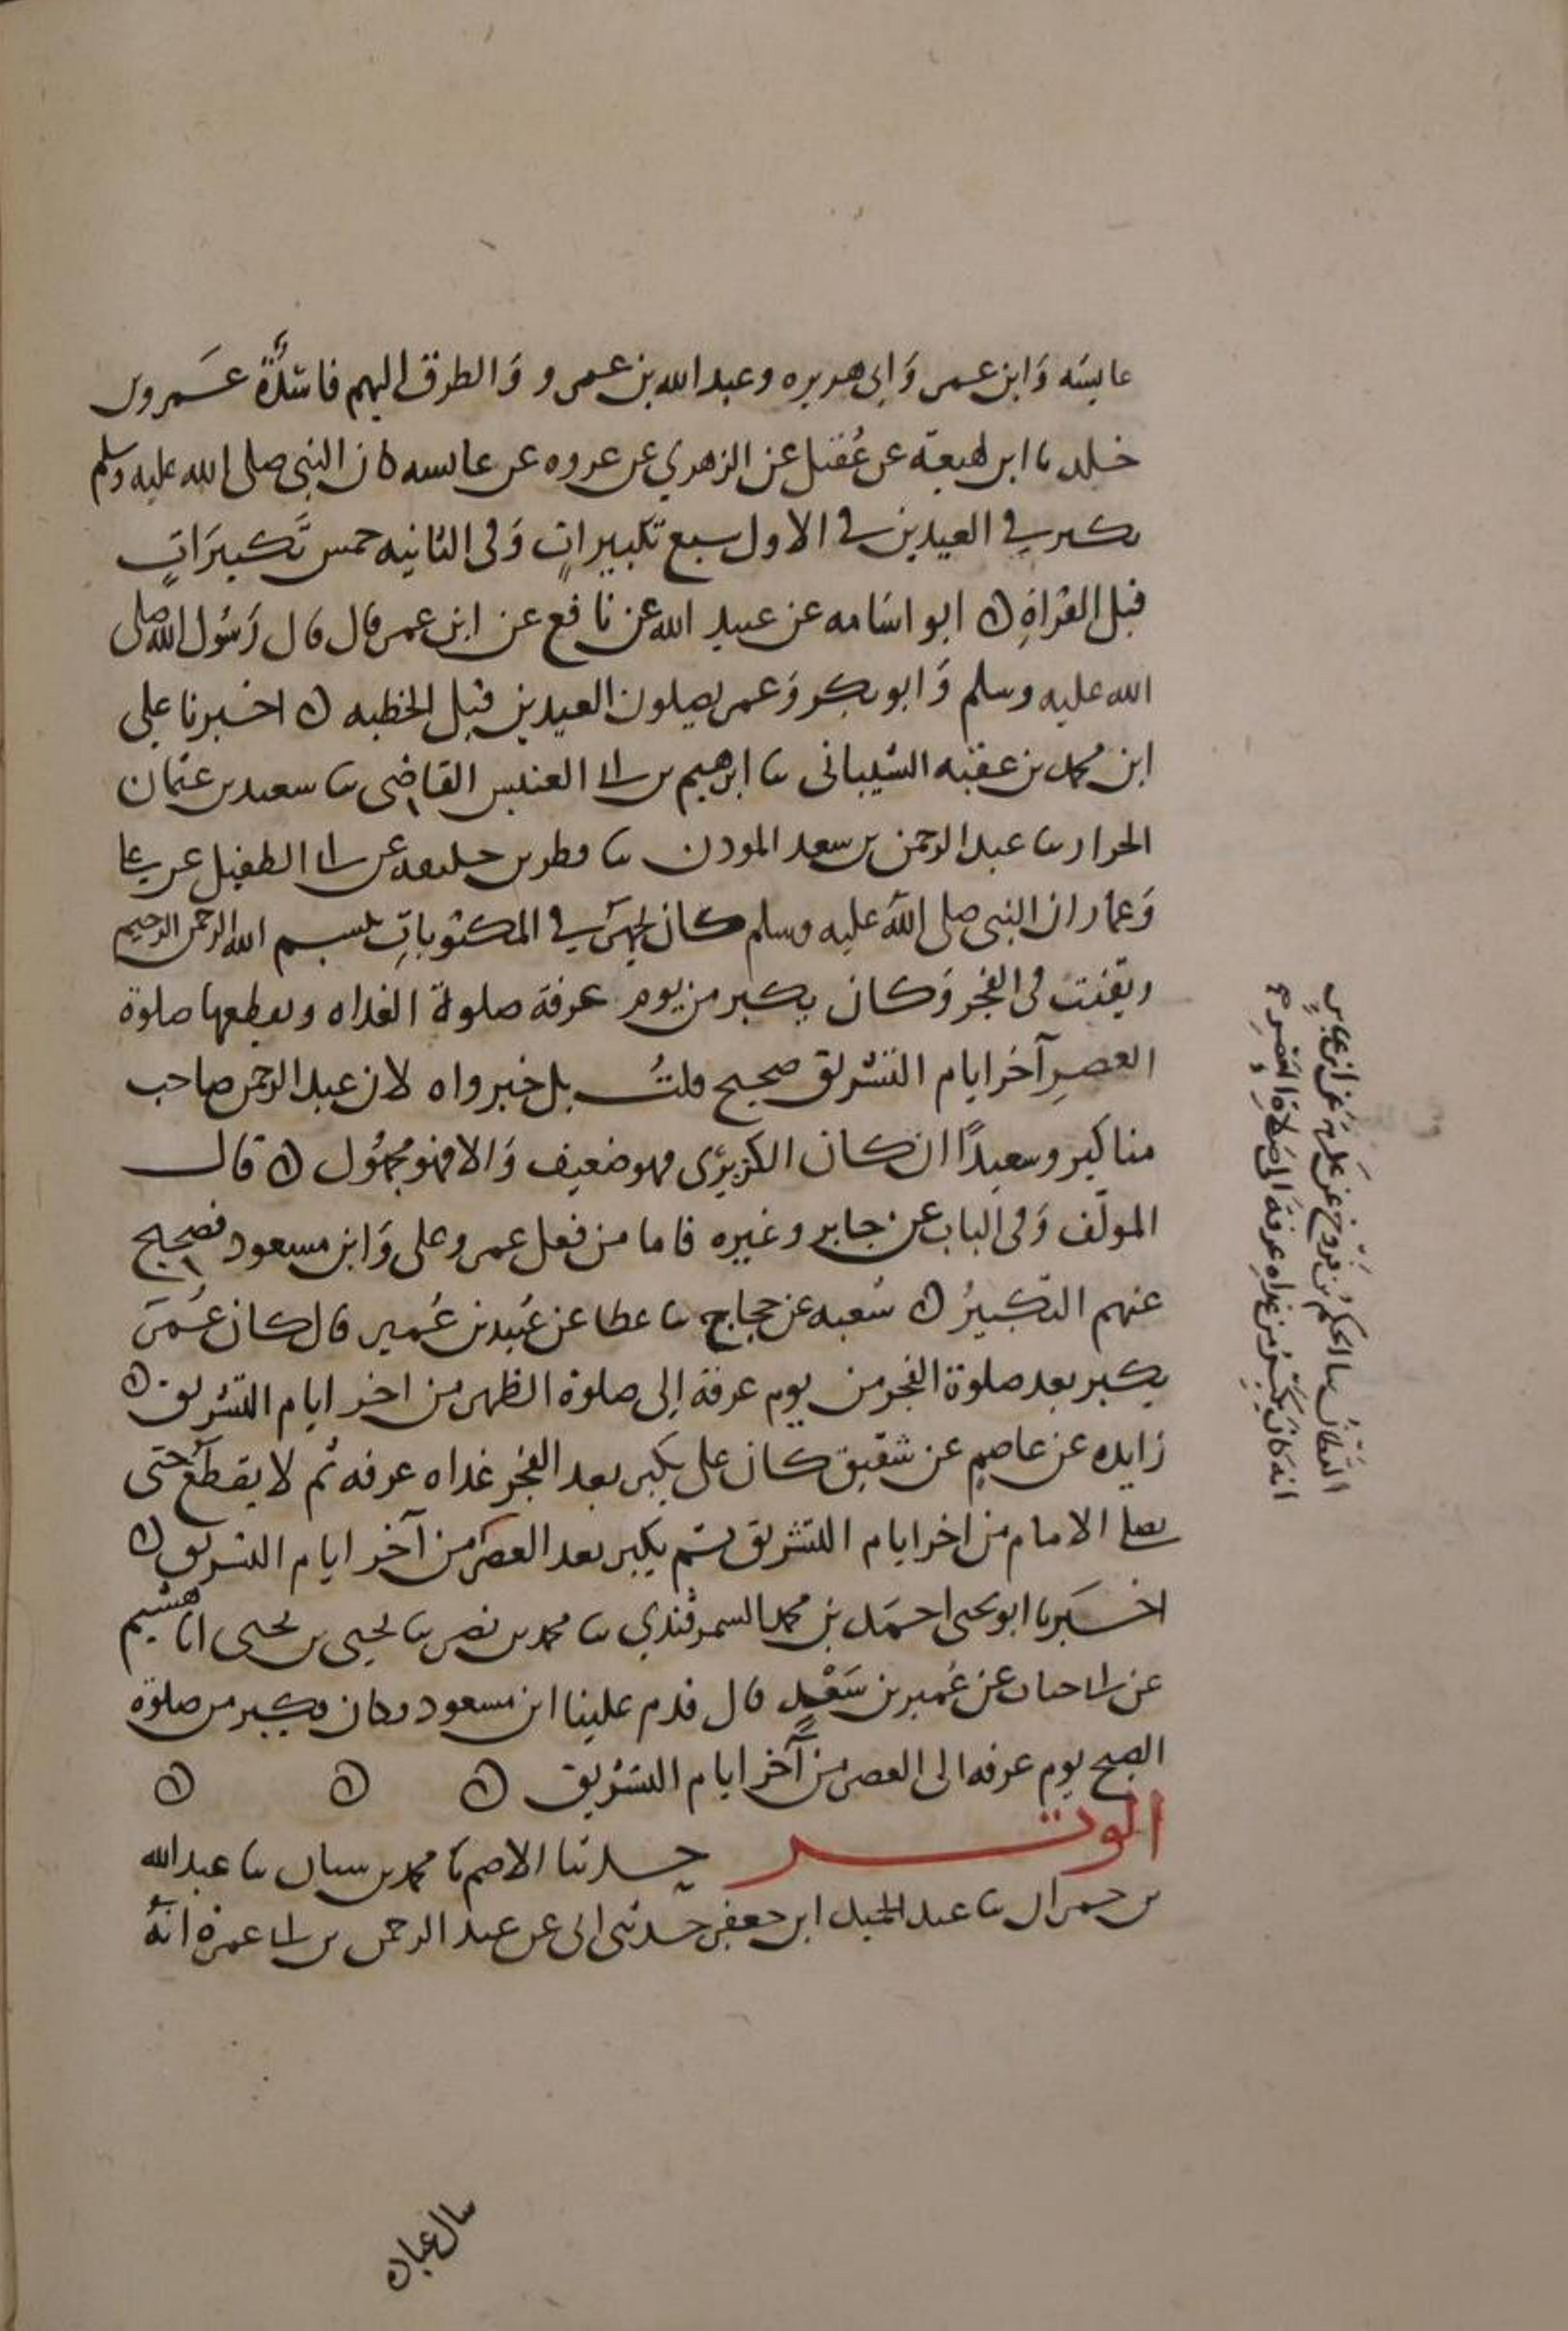 عايشه وَابن عمر وَابى هريره وعبد الله بن عمرو وَالطرق اليهم فاسدَةٌ عَمرو بن
خلد ںا ابن لهيعة عن عُقيل عن الزهري عن عروه عن عايسه كان النبى صلى الله عليه وسلم
يكبر في العيدين في الاول سبع تكبيراتٍ وَفى الثانيه خمس تَكبيرَاتٍ
قبل القراةِ ۞ ابو اسَامه عن عبيد الله عن نافع عن ابن عمر قال قال رَسُول الله صلى
الله عليه وسلم وَابو بكر وَعمر يصلون العيدين قبل الخطبه ۞ اخبرنا علي
ابن محمد بن عقبه الشيبانى ںا ابرهيم بن ابى العنبس القاضِى ںا سعيد بن عثمان
الخراز ںا عبد الرحمن بن سعد الموذن ںا فطر بن خليفه عن ابى الطفيل عن علي
وَعمار ان النبى صلى الله عليه وسلم كان يجهَر في المكتوباتِ ببسم الله الرحمن الرحيم
ويقنت فى الفجر وَكان يكبر من يوم عرفة صلوة الغداه ويقطعها صلوة
العصرِ آخر ايام التشريق صحيح قلتُ بل خبر واه لان عبد الرحمن صاحب
مناكير وسعيدًا ان كان الكريزى فهو ضعيف وَالا فهو مجهُول ۞ قال
المولف وَفى الباب عن جابر وغيره فاما من فعل عمر وعلى وَابن مسعود فصحيح
عنهم التكبيرُ ۞ شعبه عن حجاج ںا عطا عن عُبيد بن عُمير قال كان عُمَر
يكبر بعد صلوة الفجر من يوم عرفة إلى صلوة الظهر من اخر ايام التشريق ۞
زايده عن عاصمٍ عن شقيق كان على يكبر بعد الفجر غداه عرفه ثم لا يقطَعُ حتى
يصلى الامام من اخر ايام التشريق ثم يكبر بعد العصر من آخر ايام التشريق ۞
اخبَرنا ابو يحيى احمَد بن محمد السمرقندي ںا محمد بن نصر ںا يحيى بن يحيى انا هشيم
عن ابى جناب عن عُمير بن سَعْيدٍ قال قدم علينا ابن مسعود فكان يكبر من صلوة
الصبح يوم عرفه الى العصر من آخر ايام التشريق ۞ ۞ ۞
الوتر حدثنا الاصم ںا محمد بن سنان ںا عبد الله
بن حمران ںا عبد الحميد ابن جعفر حدثنى ابى عن عبد الرحمن بن ابى عمرة انَّهُ
القَطّانُ ںا الحكمُ بن فرّوخ عَن عكرمَة عَن ابن عباسٍ
انه كانَ يكبّرُ من غداه عرفةَ الى صَلاة العَصْرِ
سال عباده